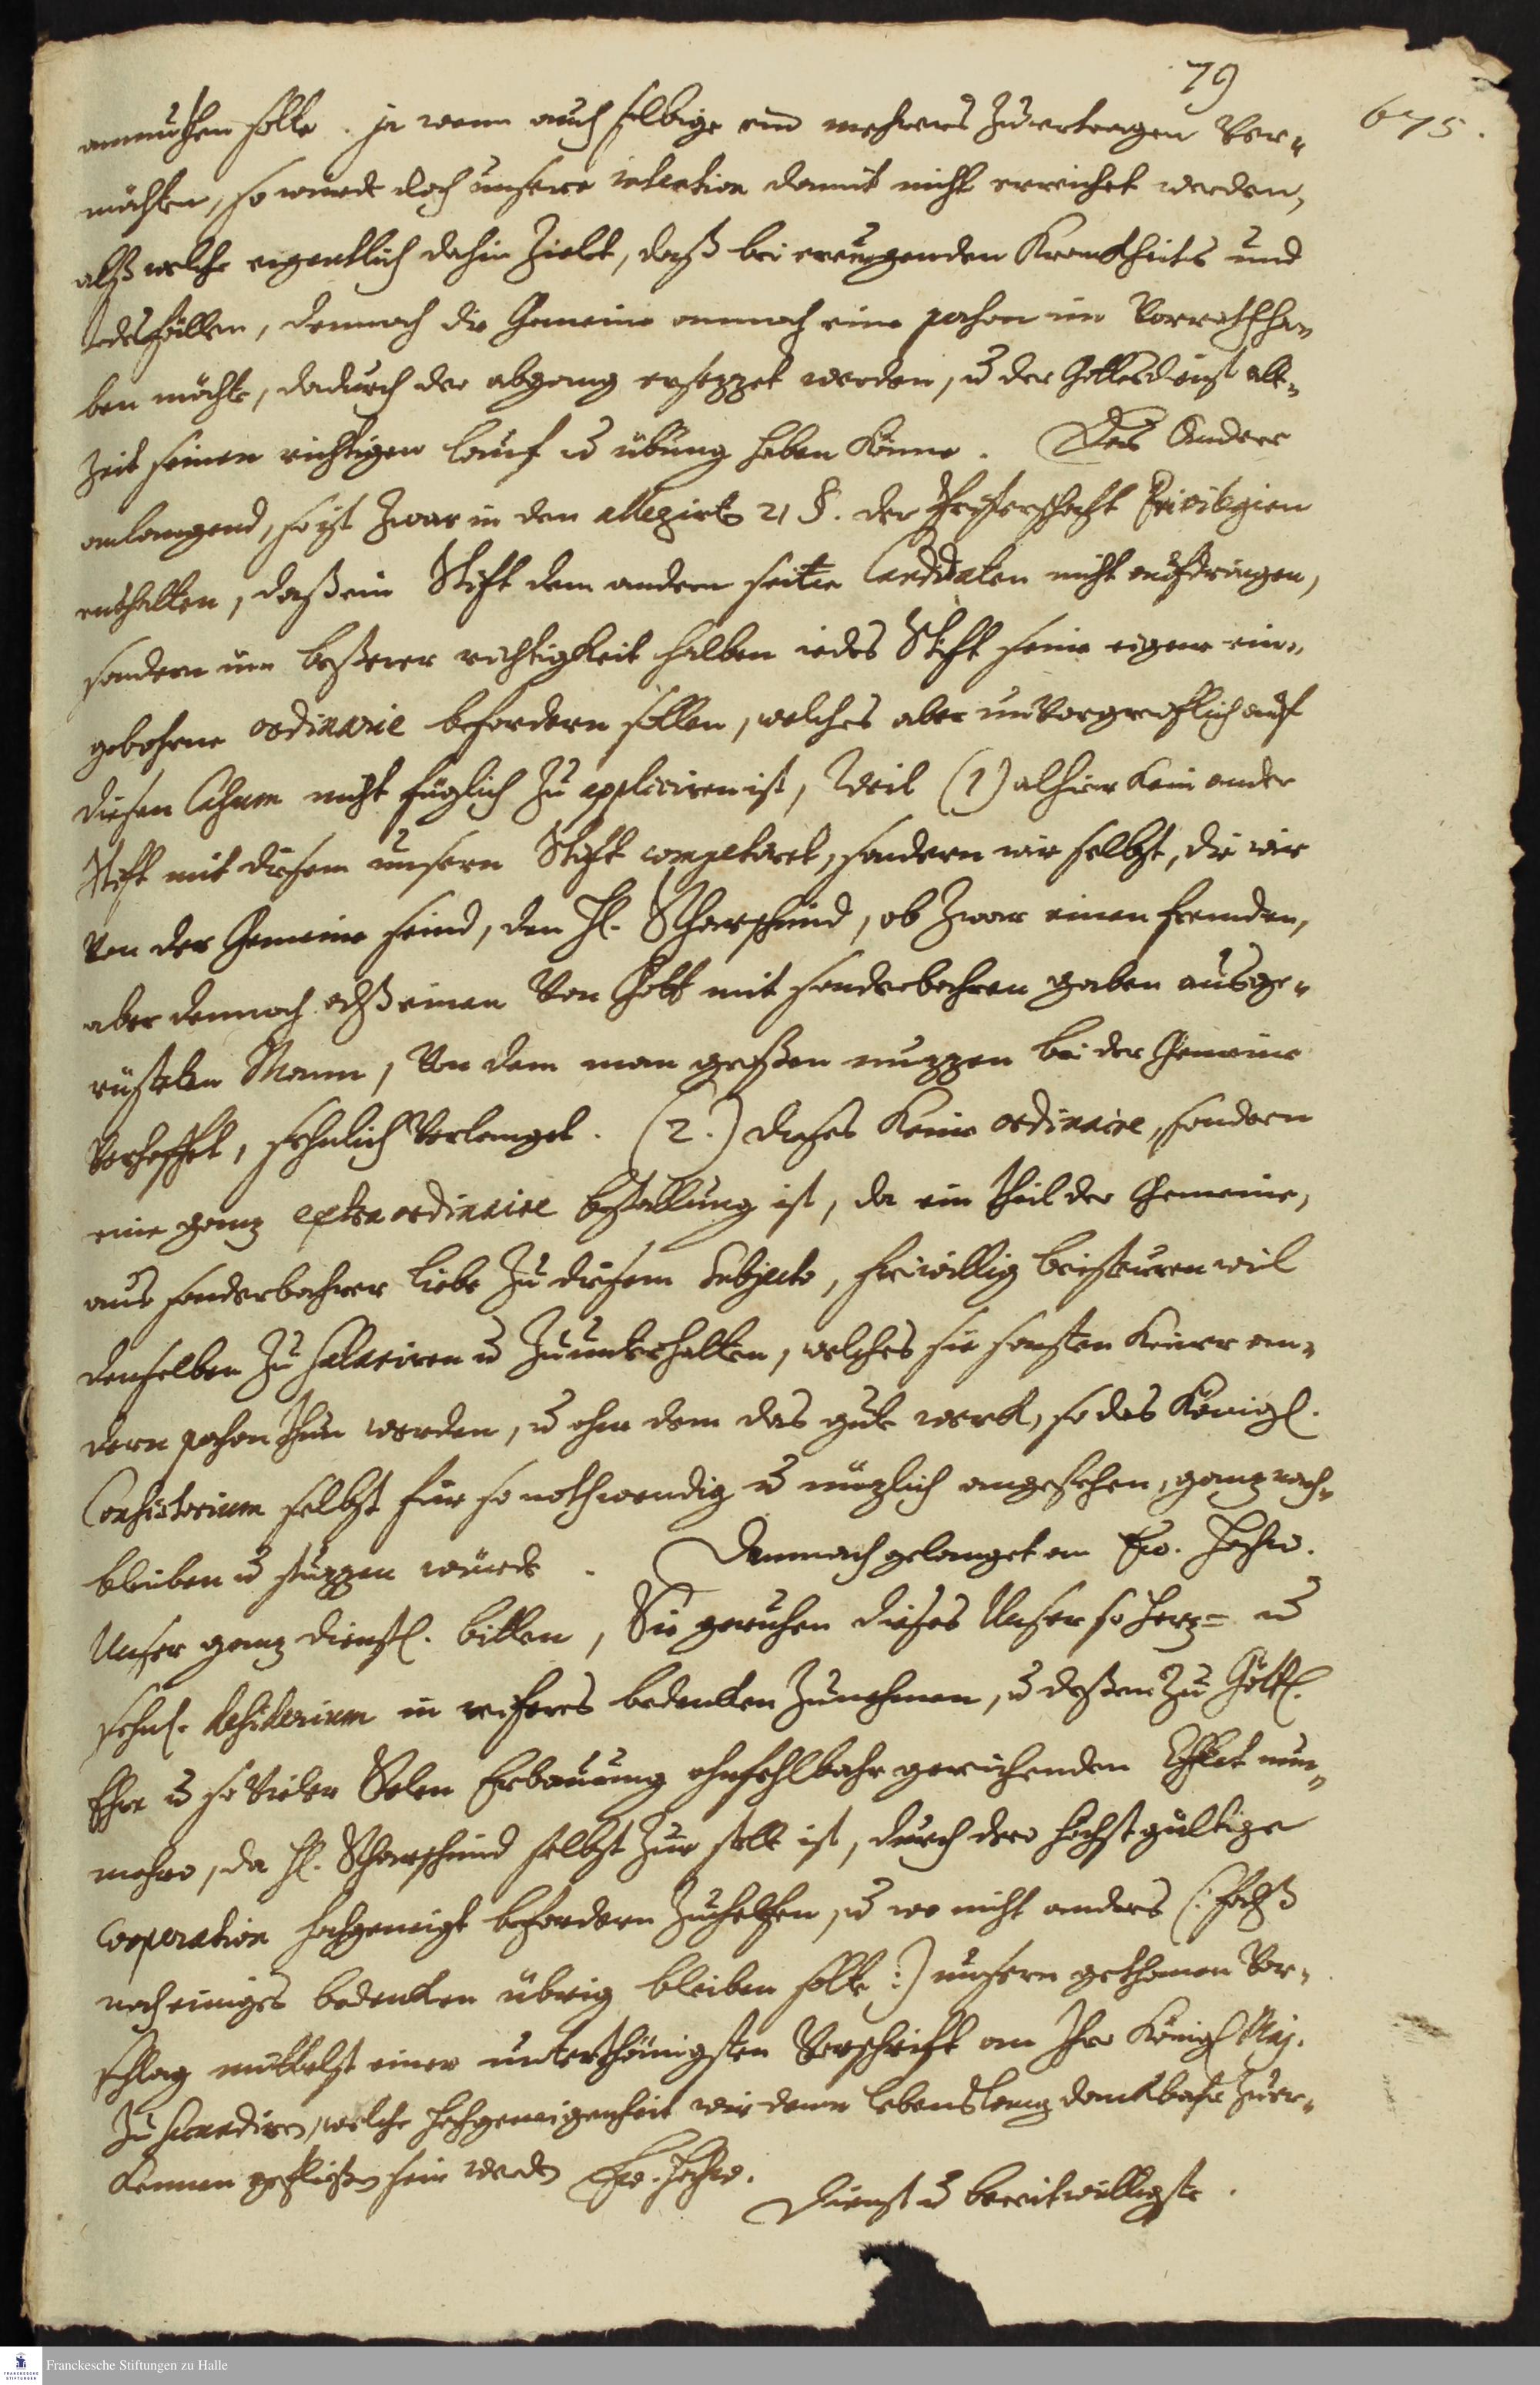 79
675.
anmuthen solte. ja wenn auch selbige ein mehrers zuertragen ver-
möchten, so würde doch unsere intention damit nicht erreichet werden,
alß welche eigentlich dahin zielet, daß bei ereugenden Kranckheits und
todesfällen, dennoch die Gemeine annoch eine person im Vorrath ha-
ben möchte, dadurch der abgang ersezzet werden, u der Gottesdienst alle-
zeit seinen richtigen lauf u übung haben könne. Das Andere
anlangend, so ist zwar in den allegirten 21 §. der Priesterschafft Privilegien
enthalten, daß ein Stift dem andern seine Candidaten nicht aufdringen,
sondern um beßerer richtigkeit halben iedes Stift seine eigene ein-
gebohrne ordinarie befordern sollen, welches aber unvorgreiflich auf
diesen Casum nicht füglich zu appliciren ist, Weil (1) alhier kein ander
Stift mit diesem unsern Stift competiret, sondern wir selbst, die wir
von der Gemeine seind, den H. Scharschmid, ob zwar einen fremden,
aber dennoch alß einen von Gott mit sonderbahren gaben ausge-
rüsteten Mann, von dem man großen nuzzen bei der Gemeine
verhoffet, sehnlich verlanget. (2.) dieses keine ordinaire, sondern
eine ganz extraordinaire bestallung ist, da ein theil der Gemeine,
aus sonderbahrer liebe zu diesem Subjecto, freiwillig beisteuren wil
denselben zu salariren u zuunterhalten, welches sie sonsten keiner an-
dern person thun werden, u ohn dem das gute werk, so das Königl.
Consistorium selbst fur so nothwendig u nüzlich angesehen, ganz nach-
bleiben u stuzzen würde. Demnach gelanget an Ew. Hochw.
Unser ganz dienstl. bitten, Sie geruhen dieses Unser so herz= u
sehnl. desiderium in reiferes bedenken zunehmen, u deßen zu Göttl.
Ehre u so vieler Selen Erbauung ohnfehlbahr gereichenden Effect nun-
mehro, da H. Scharschmid selbst zur stelle ist, durch dero höchstgultige
Cooperation hochgeneigt befordern zuhelfen, u wo nicht anders (: fals
noch einiges bedenken übrig bleiben solte :) unsern gethanen Vor-
schlag mittelst einer unterthänigsten Vorschrift an Ihro Königl Maj.
zu secundiren, welche hochgeneigenheit wir denn lebenslang dankbahr zuer-
kennen geflißen sein werden Ew. Hochw.
Dienst u bereitwilligste.
Franckesche Stiftungen zu Halle